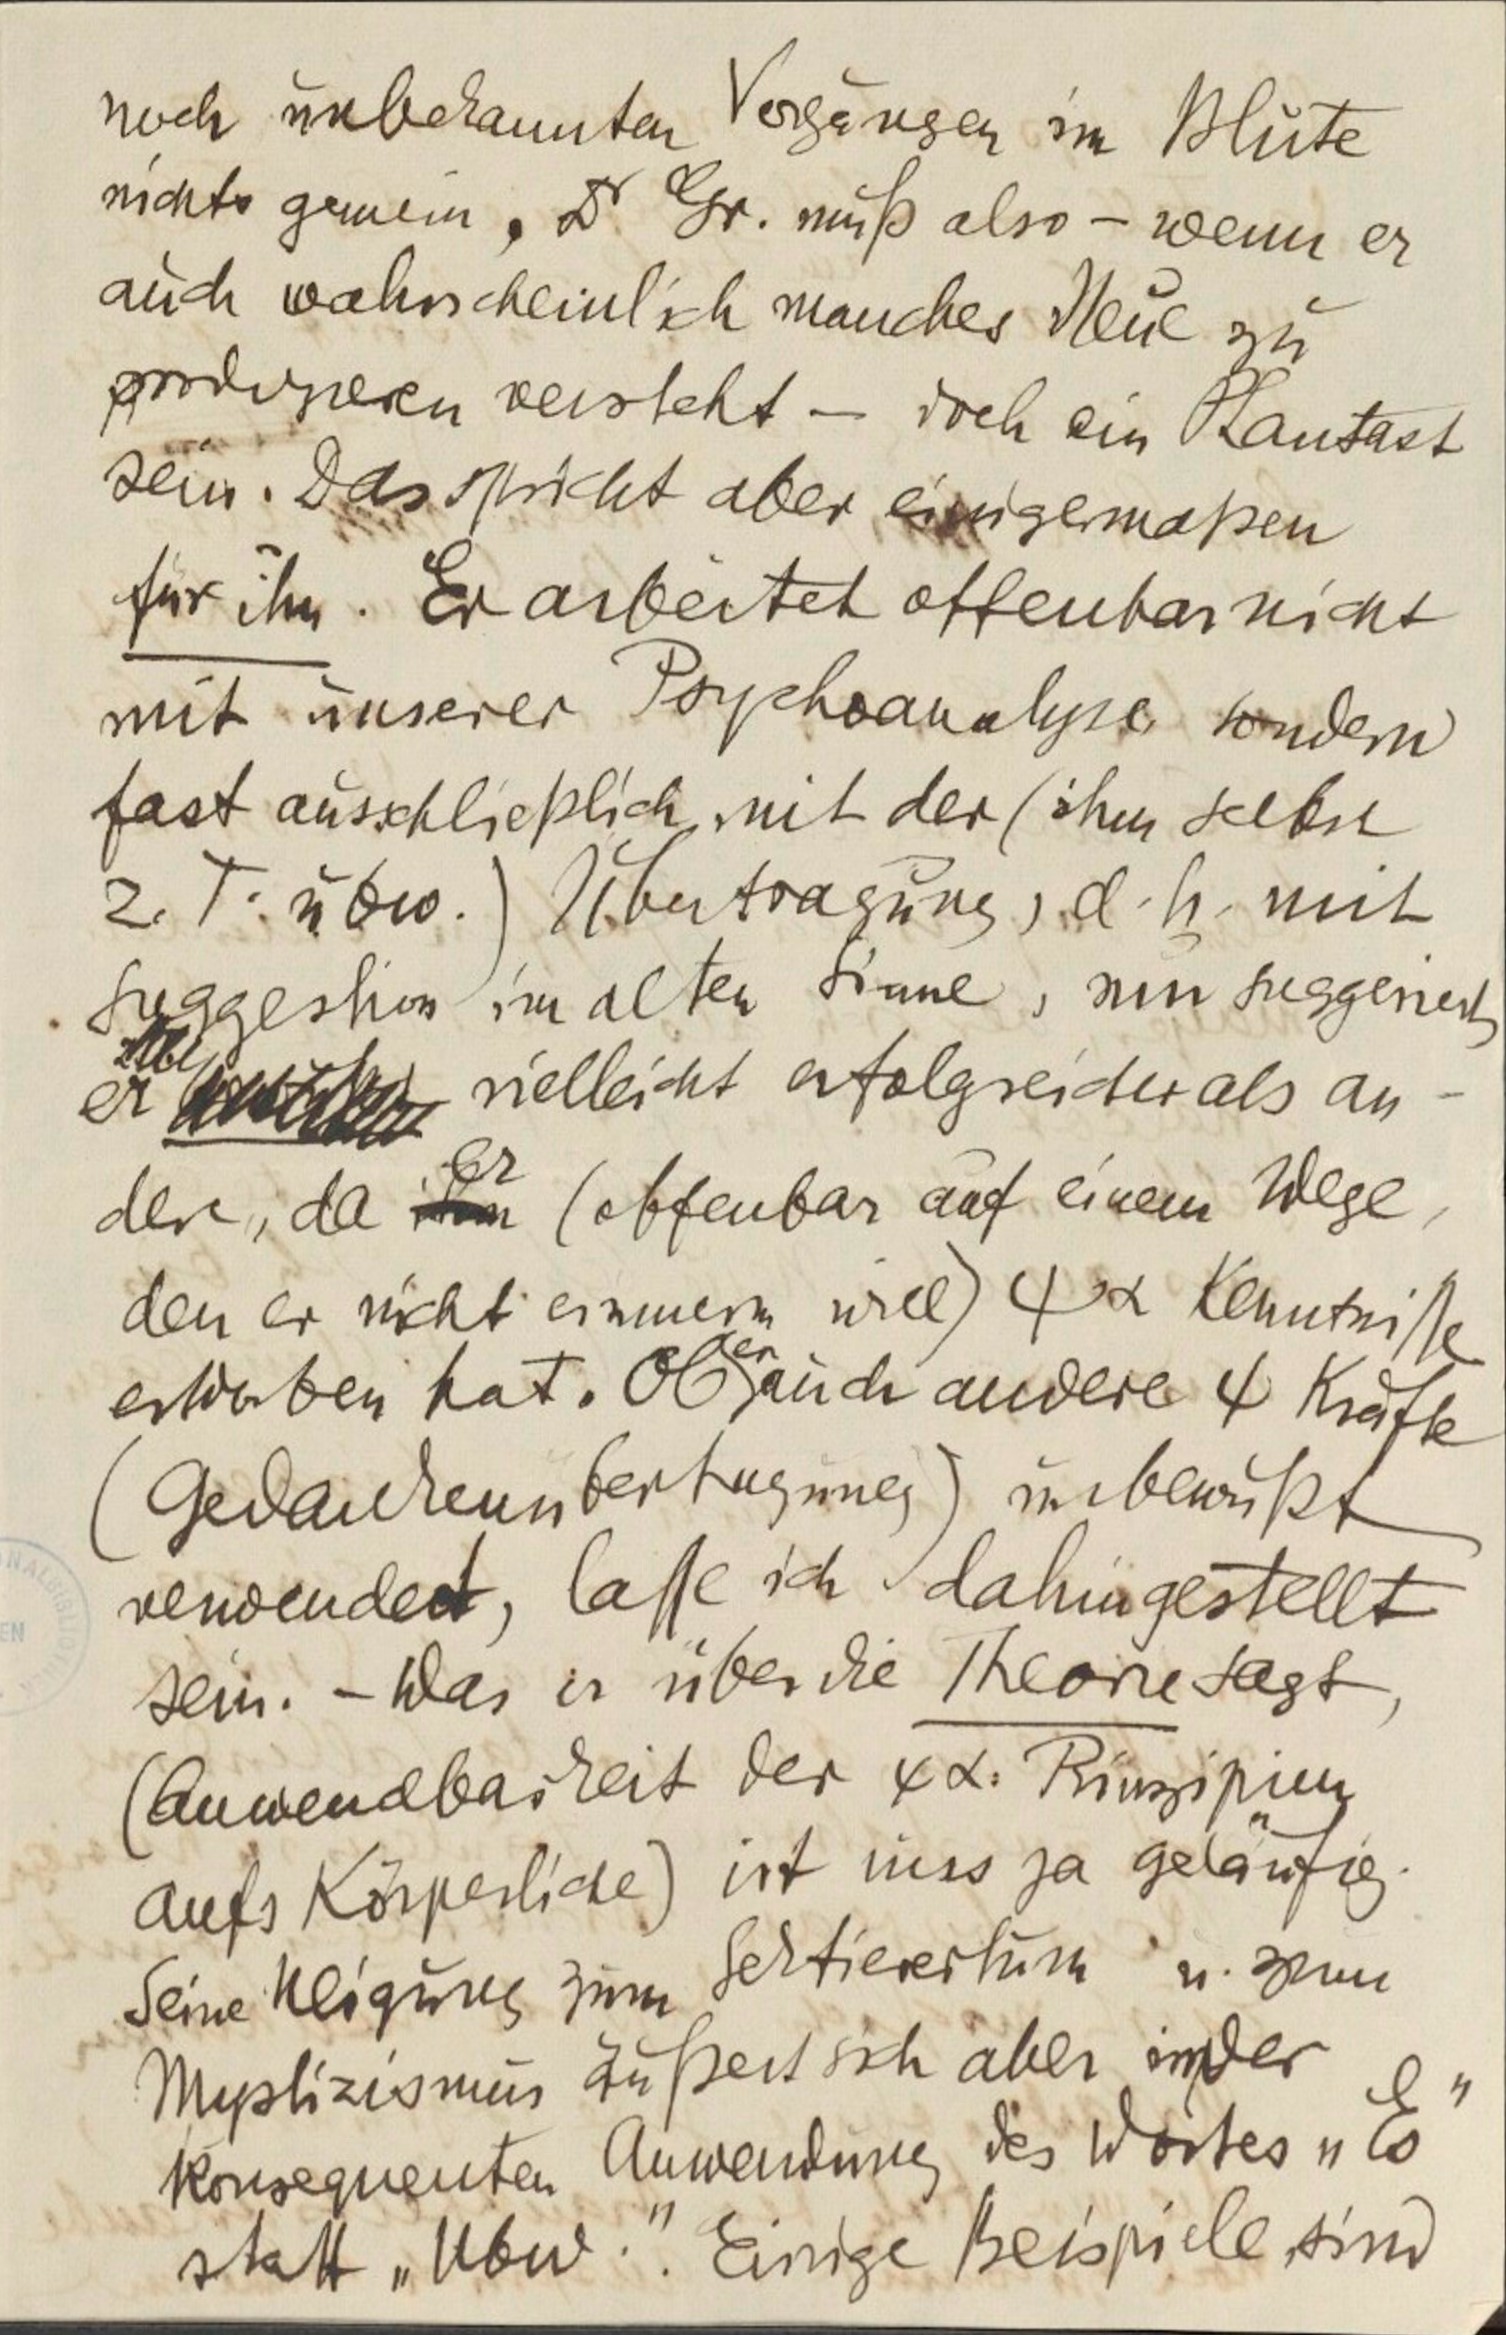 noch unbekannten Vorgängen im Blute
nichts gemein, Dr Gr. muß also – wenn er
auch wahrscheinlich manches Neue zu
produzieren versteht – doch ein Phantast
sein. Das spricht aber einigermaßen
für ihn. Er arbeitet offenbar nicht
mit unserer Psychoanalyse sondern
fast ausschließlich mit der (ihm selbst
z. T. ubw.) Übertragung, d. h. mit
Suggestion im alten Sinne, nur suggeriert
er vielleicht erfolgreicher als an-
dere, da er (offenbar auf einem Wege,
den er nicht erinnern will) ψα Kenntnisse
erworben hat. Ob er auch andere ψ Kräfte
(Gedankenübertragung) unbewußt
verwendet, lasse ich dahingestellt
sein. – Was er über die Theorie sagt,
(Anwendbarkeit der ψα. Prinzipien
aufs Körperliche) ist uns ja geläufig.
Seine Neigung zum Sektierertum u. zum
Mystizismus äußert sich aber in der
konsequenten Anwendung des Wortes „Es"
statt „Ubw.". Einige Beispiele sind